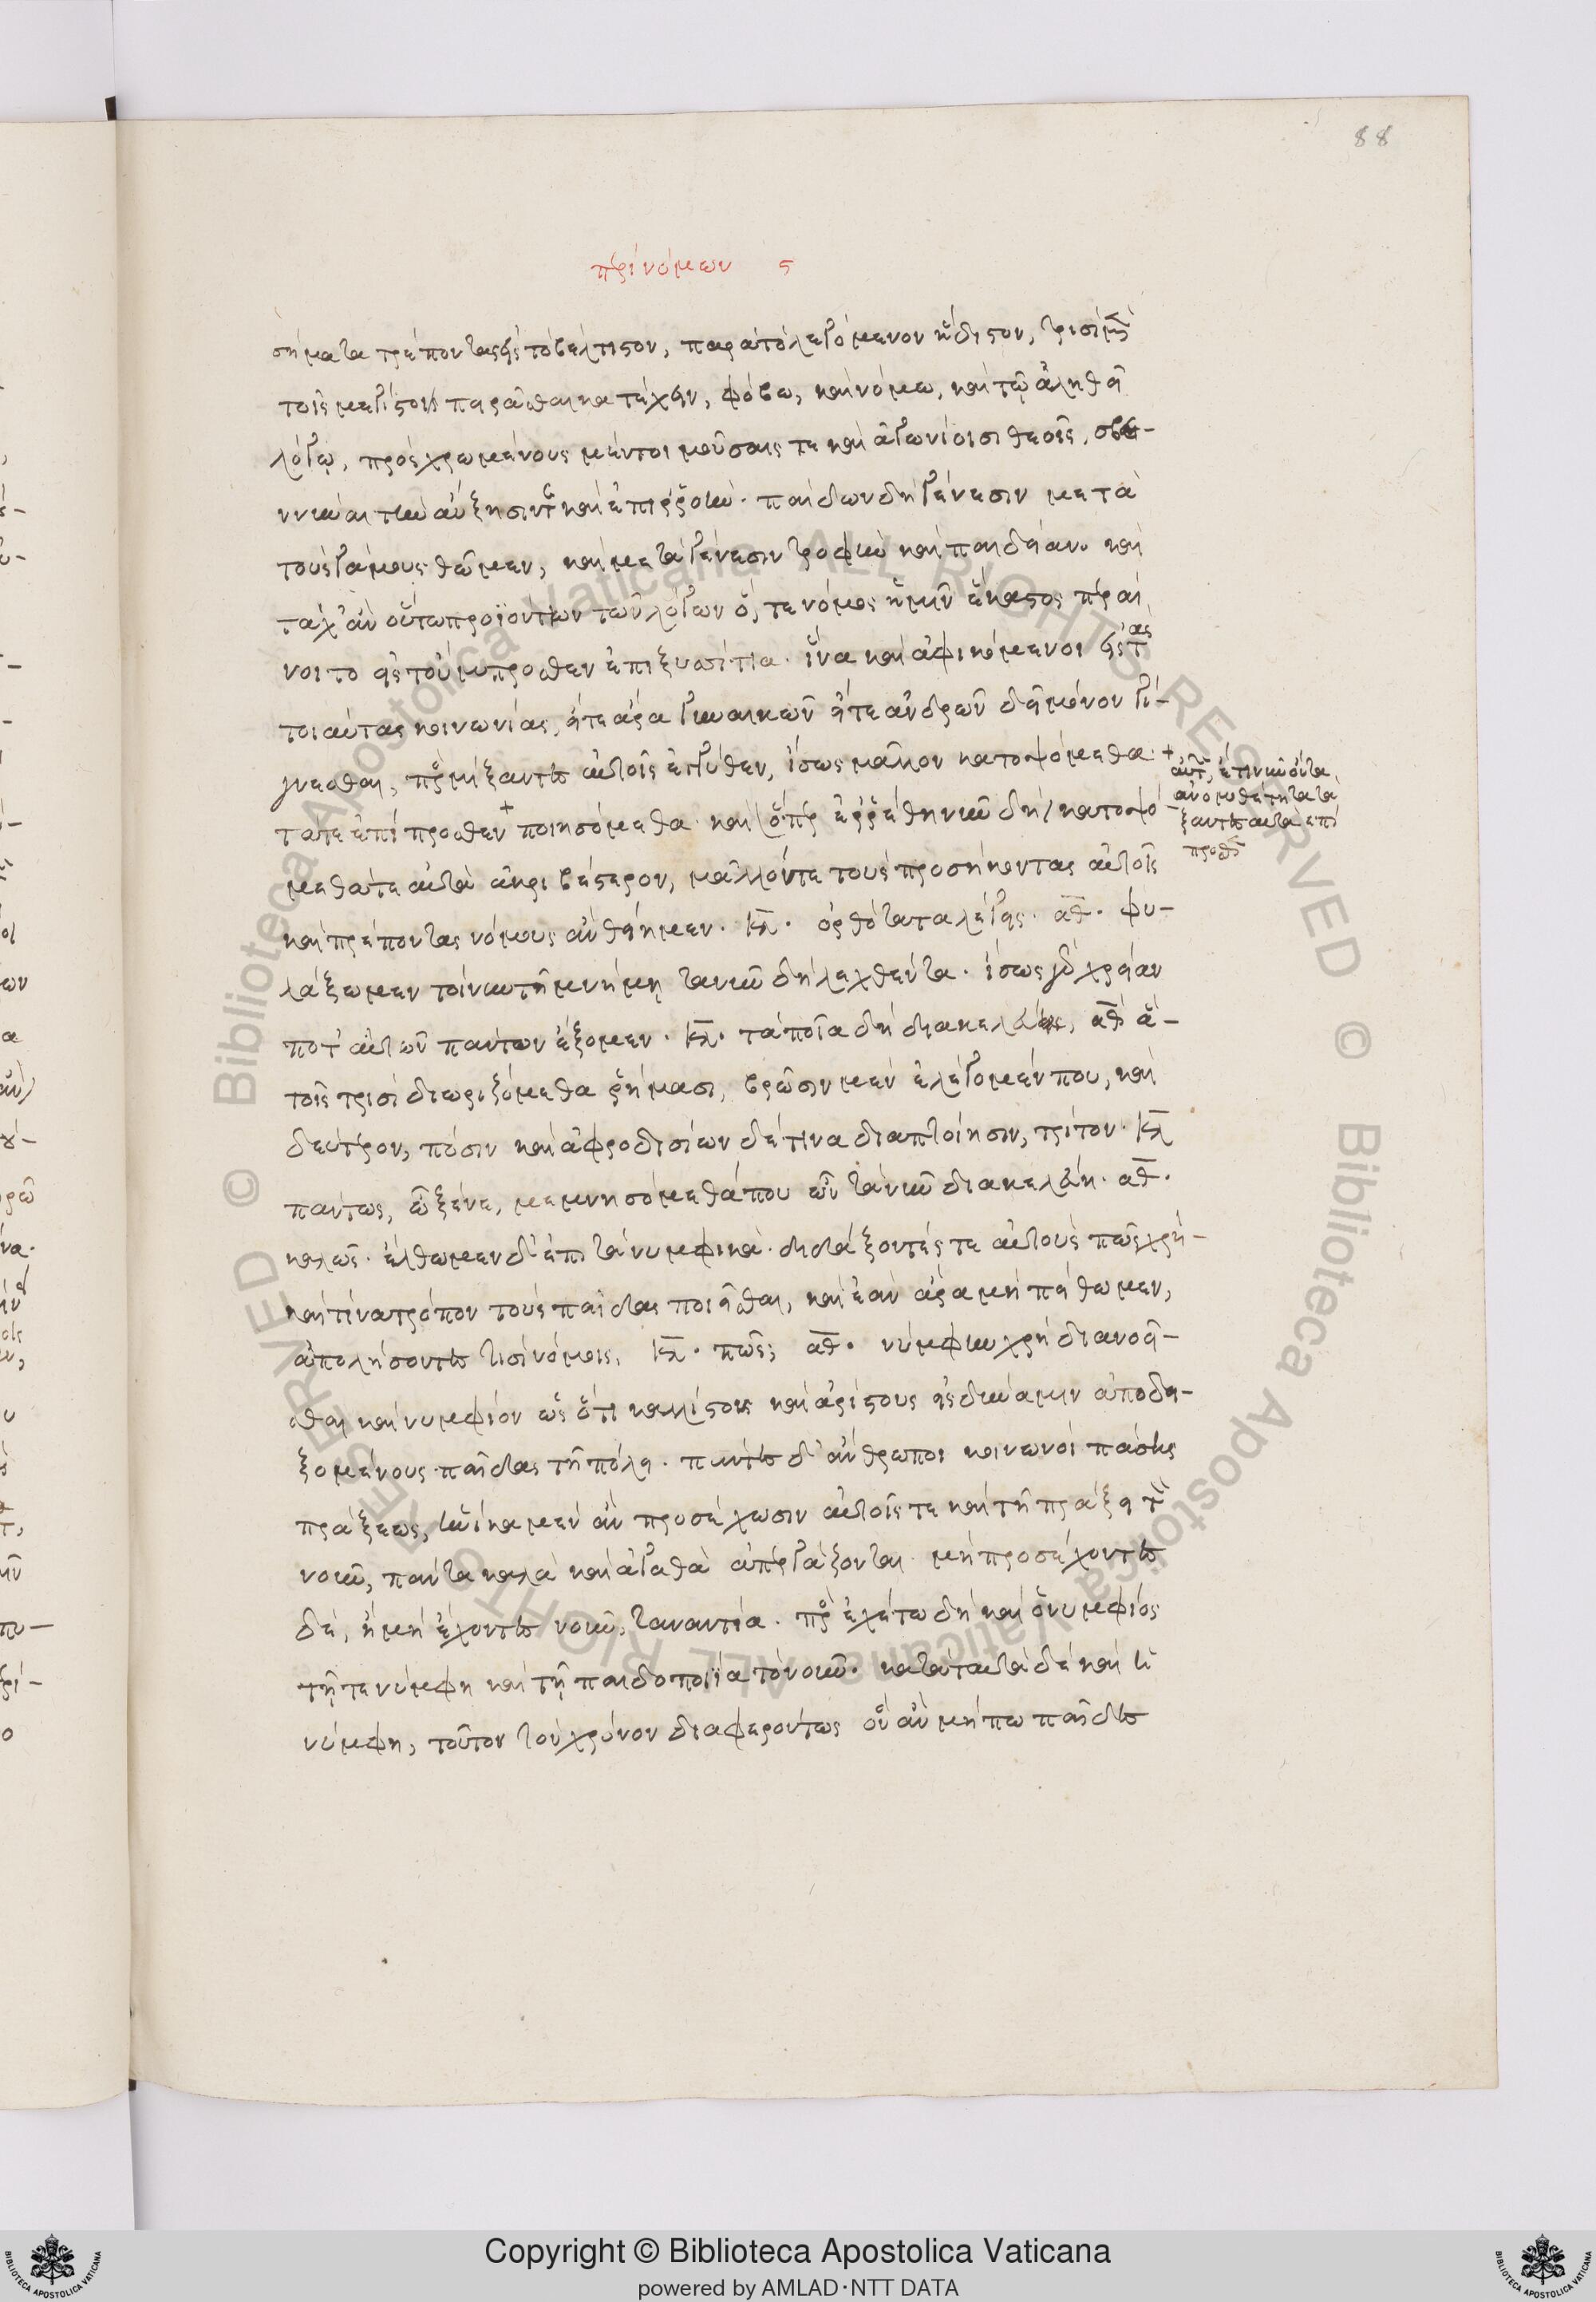 88
περὶ νόμων ς
σήματα τρέποντας εἰς τὸ βέλτιστον, παρὰ τὸ λεγόμενον ἥδιστον, τρισὶ μὲν
τοῖς μεγίστοις πειρᾶσθαι κατέχειν, φόβω, καὶ νόμω, καὶ τῷ ἀληθεῖ
λόγῳ, προσχρωμένους μέντοι μούσαις τε καὶ ἀγωνίοισι θεοῖς, σβε-
ννύναι τὴν αὔξησίν τε καὶ ἐπιῤῥοήν. παίδων δὴ γένεσιν μετὰ
τοὺς γάμους θῶμεν, καὶ μετὰ γένεσιν τροφὴν καὶ παιδείαν. καὶ
τάχ' ἂν οὕτω προϊόντων τῶν λόγων ὅ, τε νόμος ἡμῖν ἕκαστος περαί
νοιτο εἰς τοὔμπροσθεν ἐπὶ ξυσίτια. ἵνα καὶ ἀφικόμενοι εἰς τὰς
τοιαύτας κοινωνίας, εἴτε ἄρα γυναικῶν εἴτε ἀνδρῶν δεῖ μόνον γί-
γνεσθαι, προσμίξαντες αὐτοῖς ἐγγύθεν, ἴσως μᾶλλον κατοψόμεθα.
τά τε ἐπίπροσθεν + ποιησόμεθα. καὶ ὅπερ ἐῤῥέθη νῦν δὴ, κατοψό
μεθά τε αὐτὰ ἀκριβέστερον, μᾶλλόν τε τοὺς προσήκοντας αὐτοῖς
καὶ πρέποντας νόμους ἂν θείημεν. κλ. ὀρθότατα λέγεις. αθ. φυ-
λάξωμεν τοίνυν τῆ μνήμη τὰ νῦν δὴ λεχθέντα. ἴσως γὰρ χρείαν
ποτ' αὐτῶν πάντων ἕξομεν. κλ. τὰ ποῖα δὴ διακελεύει, αθ ἃ
τοῖς τρισὶ διωριζόμεθα ῥήμασι, βρῶσιν μὲν ἐλέγομέν που, καὶ
δεύτερον, πόσιν καὶ ἀφροδισίων δέ τινα διαπτοίησιν, τρίτον. κλ
πάντως, ὦ ξένε, μεμνησόμεθά που ὧν τὰ νῦν διακελεύη. αθ.
καλῶς. ἔλθωμεν δ' ἐπὶ τὰ νυμφικὰ. διδάξοντές τε αὐτοὺς πῶς χρὴ
καὶ τίνα τρόπον τοὺς παῖδας ποιεῖσθαι, καὶ ἐὰν ἄρα μὴ πείθωμεν,
ἀπειλήσοντες τισὶ νόμοις. κλ. πῶς; αθ. νύμφην χρὴ διανοεῖ-
σθαι καὶ νυμφίον ὡς ὅτι καλλίστους καὶ ἀρίστους εἰς δύναμιν ἀποδει-
ξομένους παῖδας τῆ πόλει. πάντες δ' ἄνθρωποι κοινωνοὶ πάσης
πράξεως, ἡνίκα μὲν ἂν προσέχωσιν αὐτοῖς τε καὶ τῆ πράξει τὸν
νοῦν, πάντα καλὰ καὶ ἀγαθὰ ἀπεργάζονται. μὴ προσέχοντες
δέ, ἢ μὴ ἔχοντες νοῦν, τἀναντία. προσεχέτω δὴ καὶ ὁ νυμφίος
τῆ τε νύμφη καὶ τῆ παιδοποιΐα τὸν νοῦν. κατὰ ταὐτὰ δὲ καὶ ἡ
νύμφη, τοῦτον τὸν χρόνον διαφερόντως οὗ ἂν μήπω παῖδες
+ αὐτῶν, ἔτι νῦν ὄντα
ἀνομοθέτητα τά
ξαντες αὐτὰ ἐπί
προσθεν
Copyright © Biblioteca Apostolica Vaticana
powered by AMLAD·NTT DATA